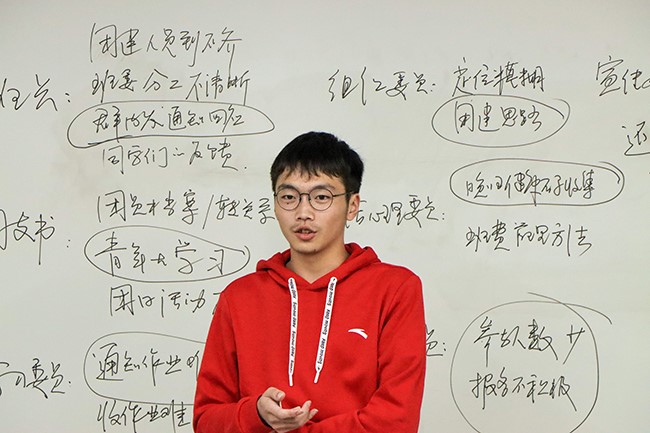 团建人员到不齐
班委分工不清晰
群内发通知回应
同学们的反馈
支书：
团员档案/转关
青年大学习
团日活动
委员：
通知作业
收作业难
组织委员：定位模糊
团建思路
晚归
收集
心理委员：
班费管理方法
数少
报名不积极
宣传